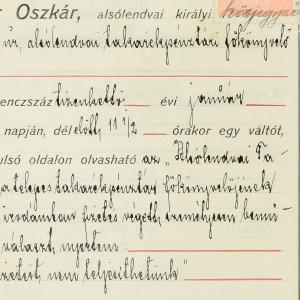 r Oszkár, alsólendvai királyi közjegyző
úr, alsólendvai takarékpénztári főkönyvelő
enczszáz tizenkettő évi január
napján, dél előtt 11 1/2 órakor egy váltót,
ulsó oldalon olvasható az "Alsólendvai Ta-
a telepes takarékpénztár főkönyvelőjének
irodámban fizetés végett személyesen bemu-
választ nyertem:
izetést nem teljesíthetünk"